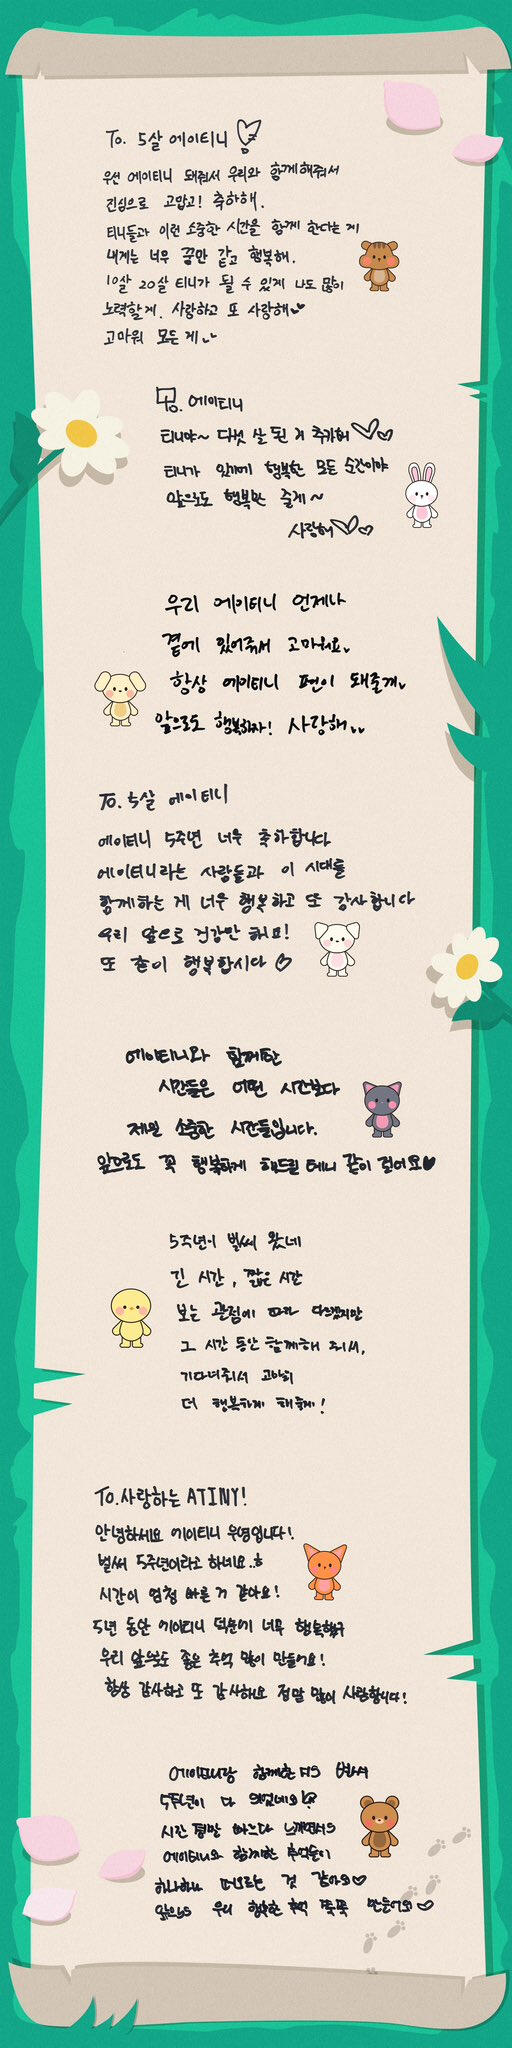 To. 5살 에이티니
우선 에이티니 돼줘서 우리와 함께해줘서
진심으로 고맙고! 축하해.
티니들과 이런 소중한 시간을 함께 한다는 게
내게는 너무 꿈만 같고 행복해.
10살 20살 티니가 될 수 있게 나도 많이
노력할게. 사랑하고 또 사랑해
고마워 모든 게
To. 에이티니
티니야~ 다섯 살 된 거 추카해
티니가 있기에 행복한 모든 순간이야
앞으로도 행복만 줄게~
사랑해
우리 에이티니 언제나
곁에 있어줘서 고마워요.
항상 에이티니 편이 돼줄게.
앞으로도 행복하자! 사랑해..
To. 5살 에이티니
에이티니 5주년 너무 축하합니다
에이티니라는 사람들과 이 시대를
함께하는 게 너무 행복하고 또 감사합니다
우리 앞으로 건강만 해요!
또 많이 행복합시다
에이티니와 함께한
시간들은 어떤 시간보다
제일 소중한 시간들입니다.
앞으로도 꼭 행복하게 해드릴 테니 같이 걸어요
5주년이 벌써 왔네
긴 시간, 짧은 시간
보는 관점에 따라 다르겠지만
그 시간 동안 함께해 줘서,
기다려줘서 고마워
더 행복하게 해줄게!
To. 사랑하는 ATINY!
안녕하세요 에이티니 우영입니다!
벌써 5주년이라고 하네요..ㅎ
시간이 엄청 빠른 거 같아요!
5년 동안 에이티니 덕분에 너무 행복했구
우리 앞으로도 좋은 추억 많이 만들어요!
항상 감사하고 또 감사해요 정말 많이 사랑합니다!
에이티니랑 함께한 지도 벌써
5주년이 다 되었네요!?
시간 정말 빠르다 느끼면서도
에이티니와 함께한 추억들이
하나하나 떠오르는 것 같아요
앞으로도 우리 행복한 추억 쭉쭉 만들어요